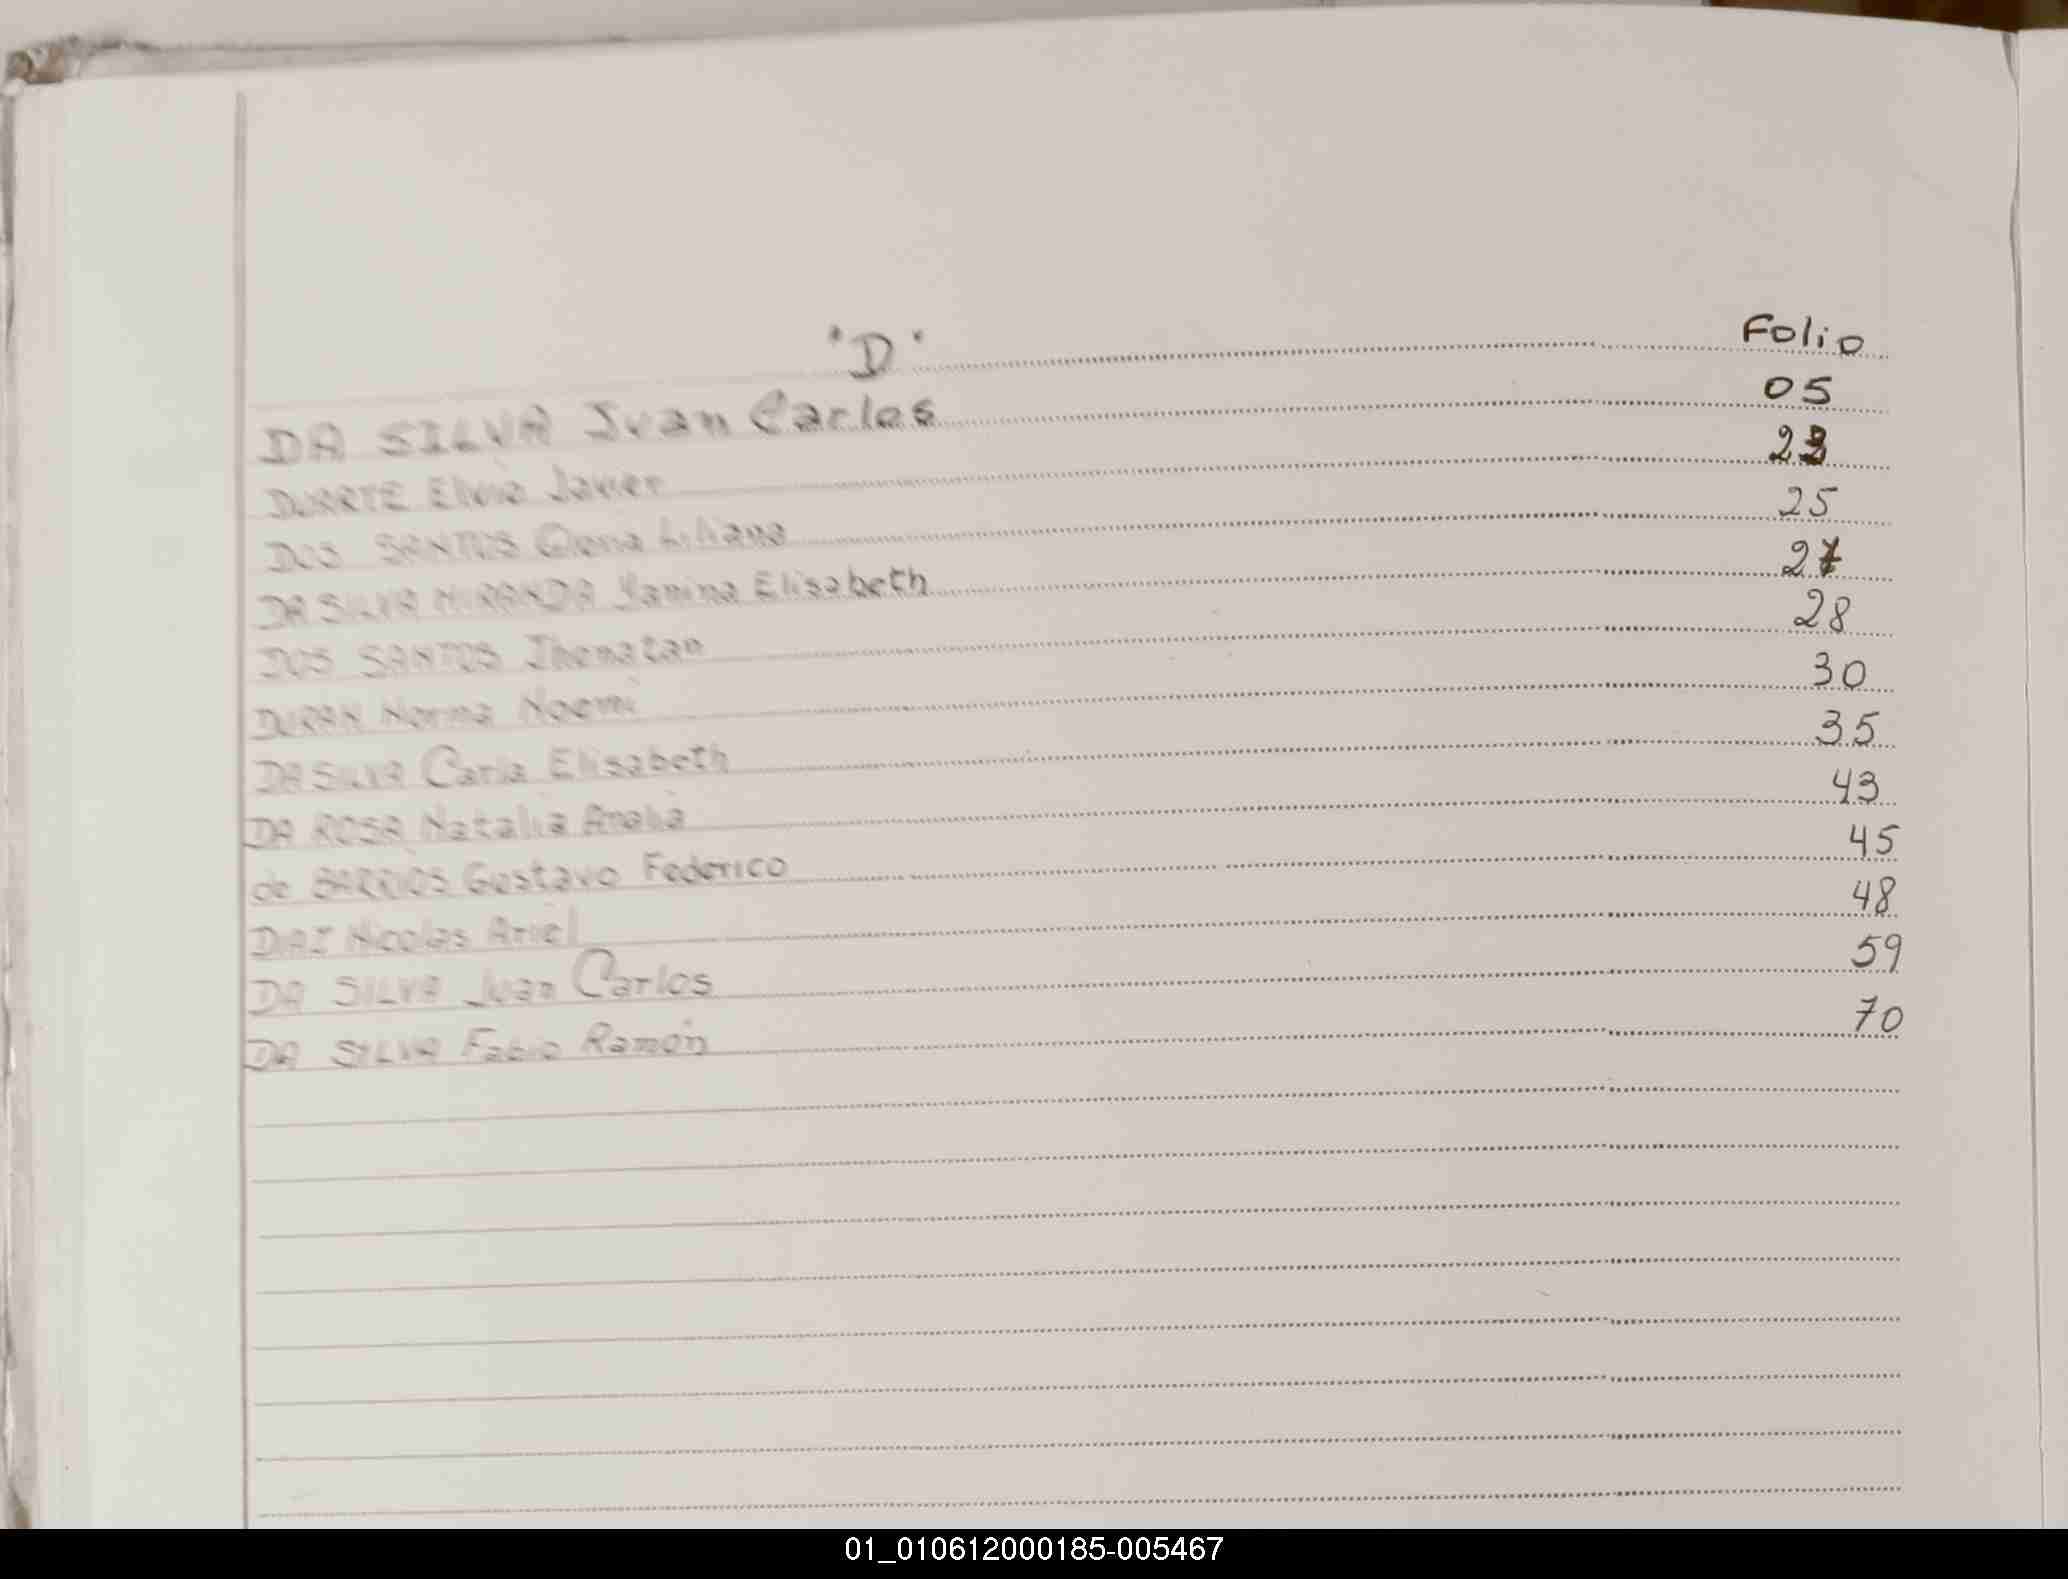 "D" Folio
DA SILVA Juan Carlos 05
DUARTE Elvio Javier 23
DOS SANTOS Liliana 25
DA SILVA MIRANDA Yanina Elisabeth 27
DOS SANTOS Jhonatan 28
DURAN Norma Noemi 30
DA SILVA Carla Elisabeth 35
DA ROSA Natalia Analia 43
de BARRIOS Gustavo Federico 45
DIAZ Nicolas Ariel 48
DA SILVA Juan Carlos 59
DA SILVA Fabio Ramón 70
01_010612000185-005467